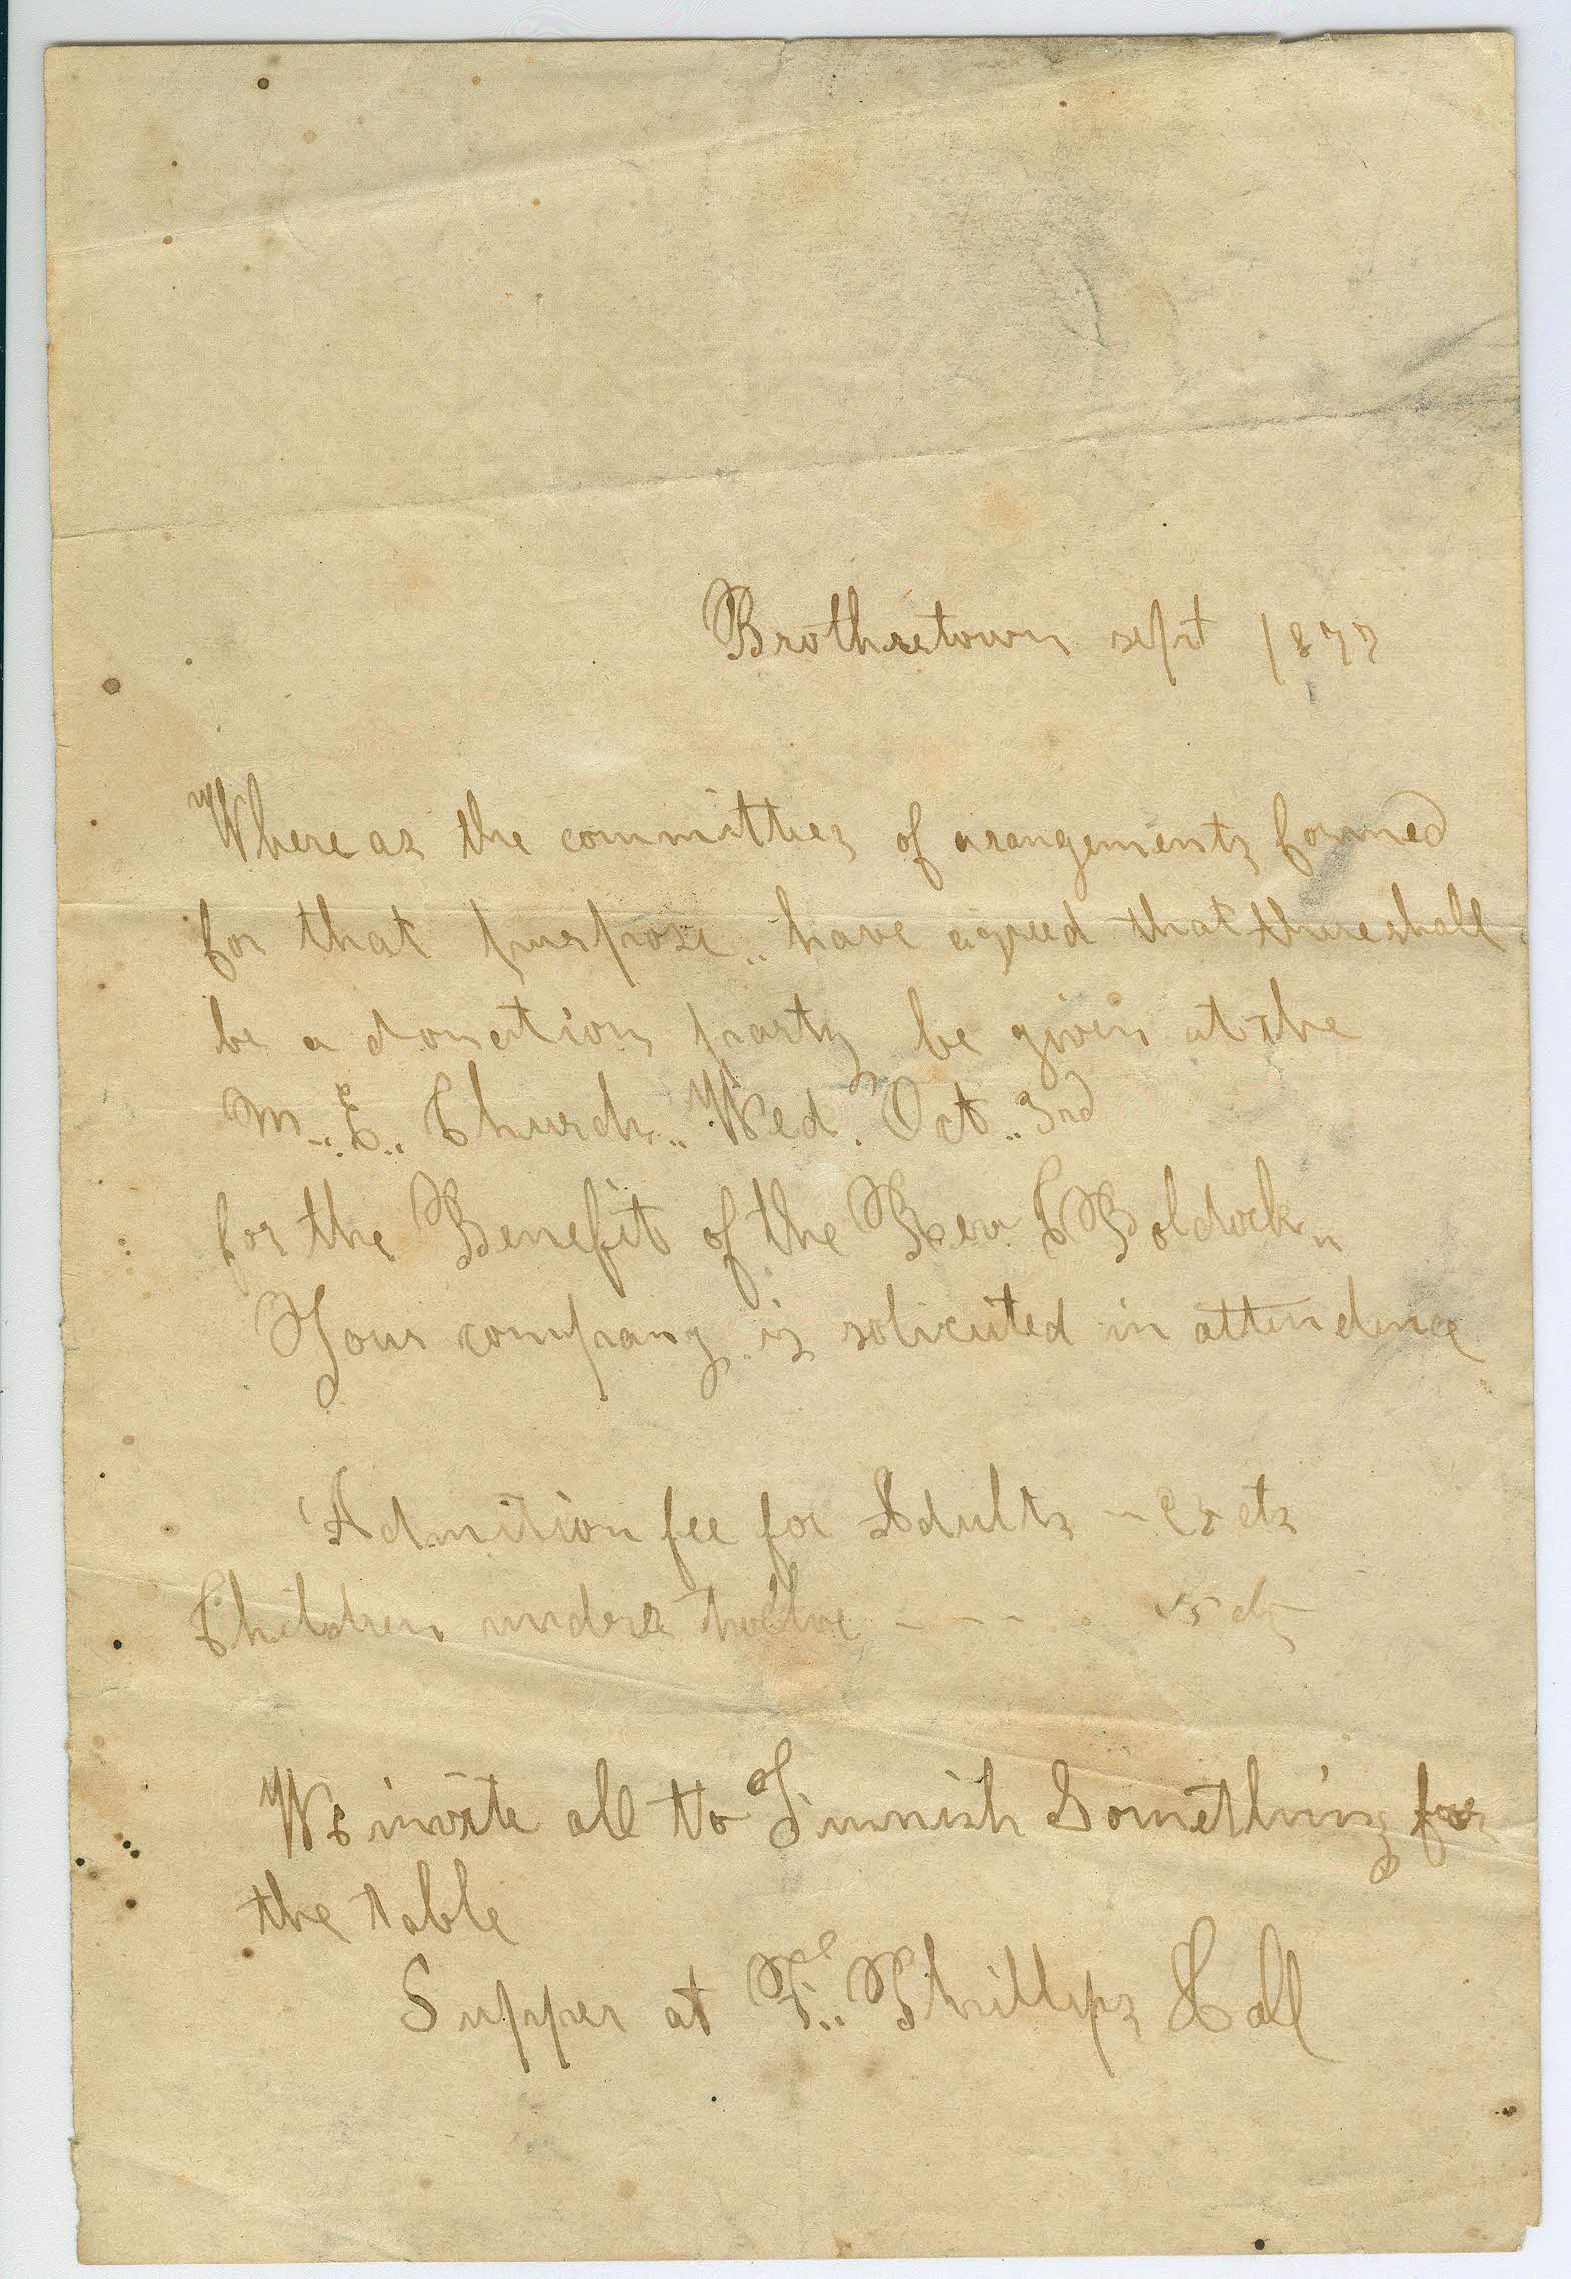 Brothretown sept 1877
Where as the committies of arangements formed
for that purpose.. have agreed that there shall
be a donation party be given at the
M.. E.. Church.. Wed. Oct.. 3rd
for the Benefit of the Rev. Boldock
Your company is solicited in attendence
Admition fee for Adults -- 25 cts
Children under twelve - - - . 15 cts
We invite all to Furnish Something for
the table
Supper at F.. Phillips Hall